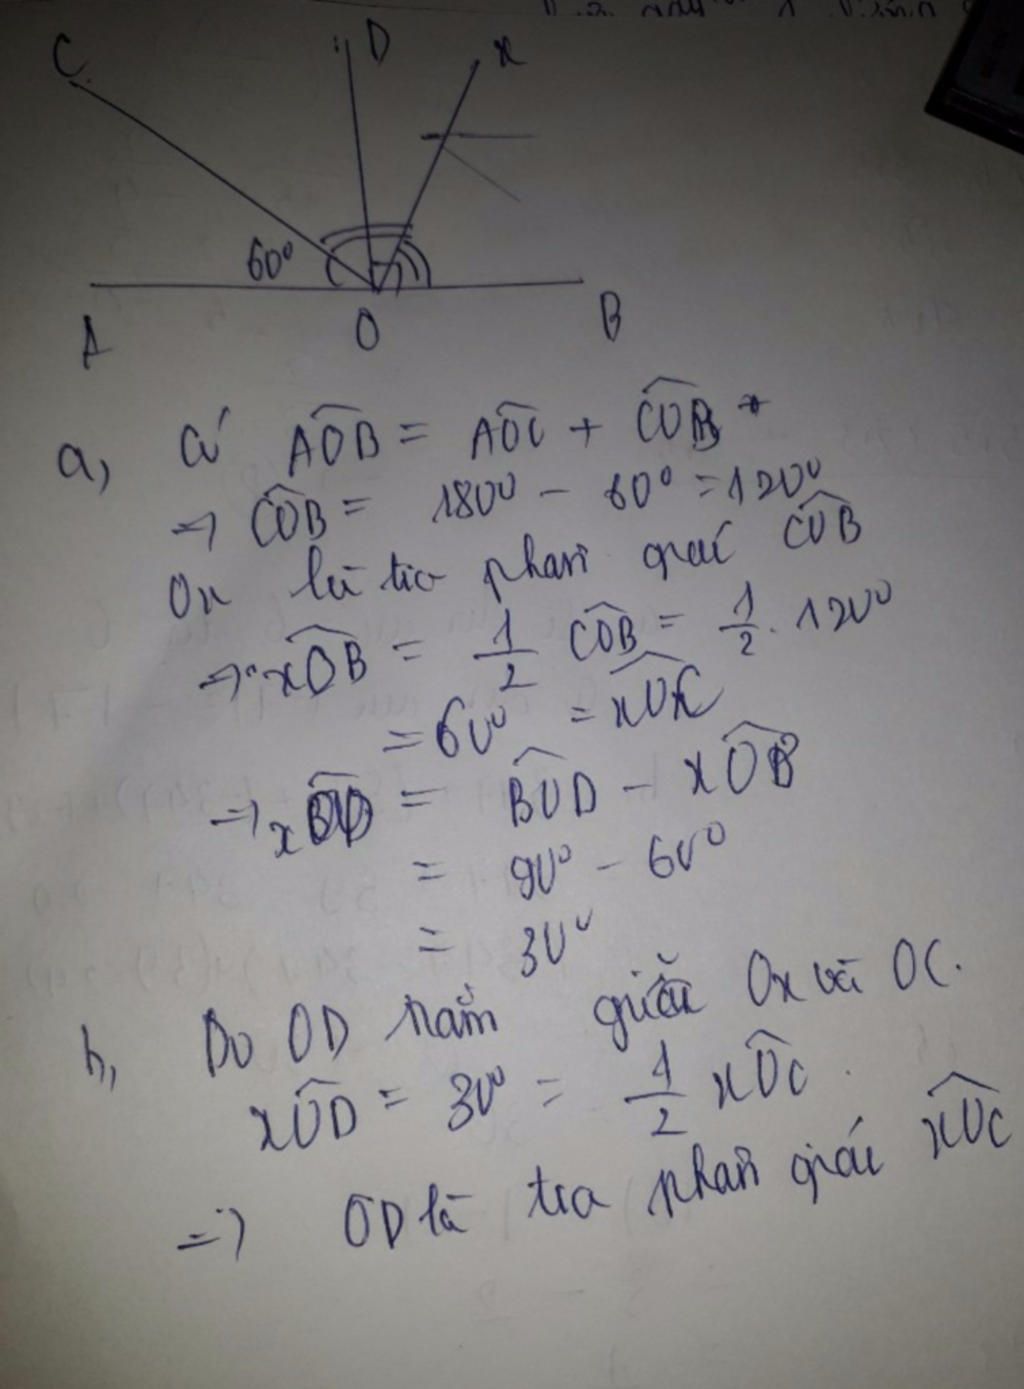 C D x
60°
A O B
a, Có AÔB = AÔC + CÔB
=> CÔB = 180° - 60° = 120°
Ox là tia phân giác CÔB
=> xÔB = 1/2 CÔB = 1/2 . 120°
= 60° = xÔC
=> xÔD = BÔD - xÔB
= 90° - 60°
= 30°
b, Do OD nằm giữa Ox và OC.
xÔD = 30° = 1/2 xÔC.
=> OD là tia phân giác xÔC